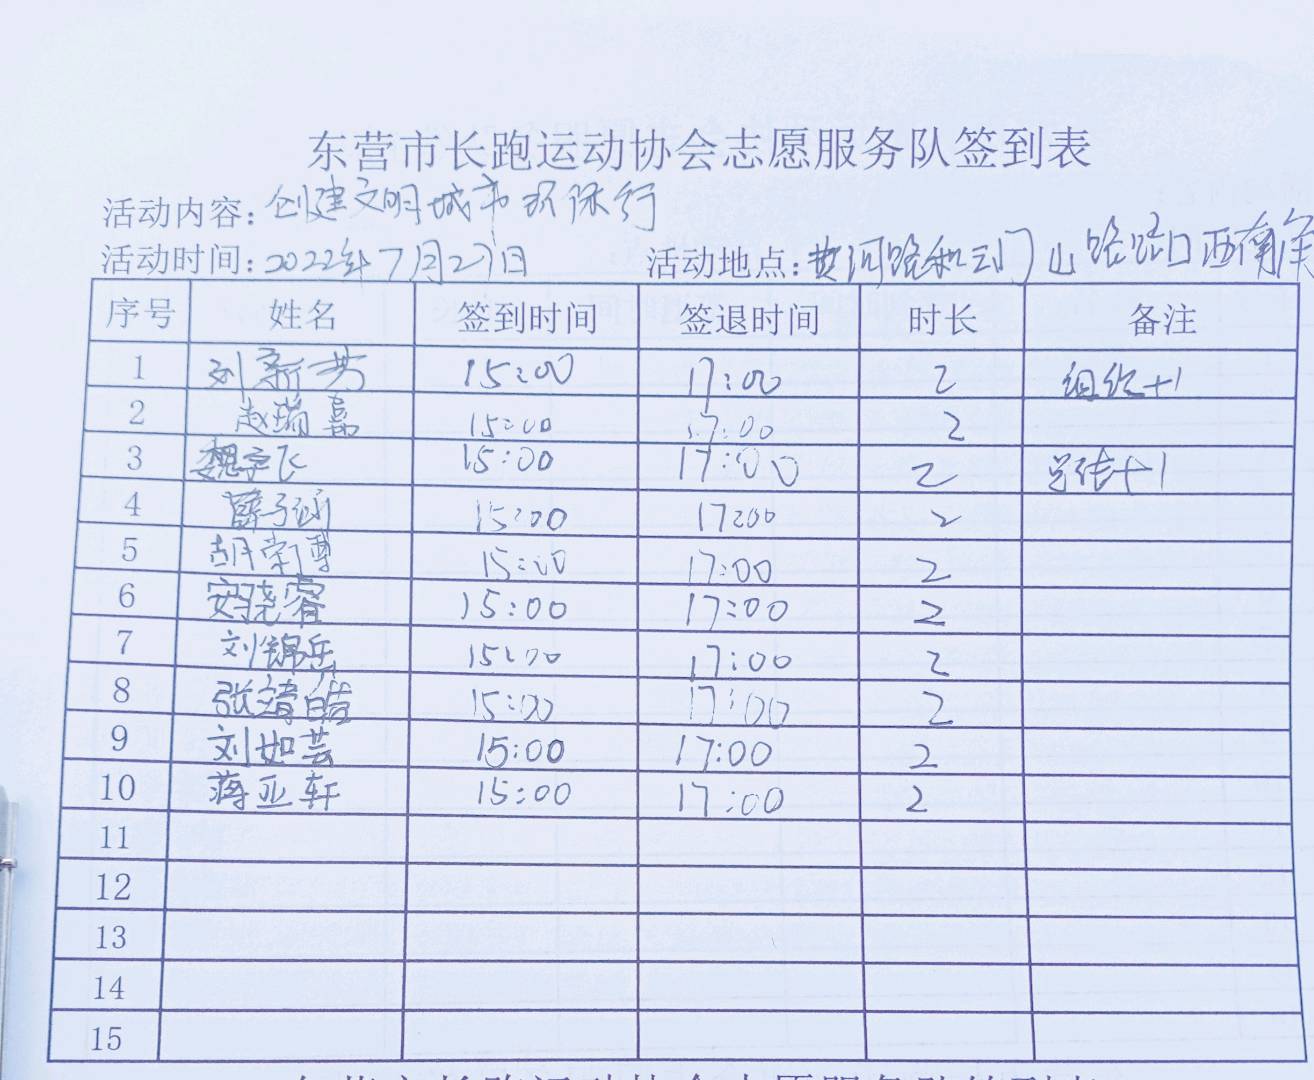 东营市长跑运动协会志愿服务队签到表
活动内容:创建文明城市环保行
活动时间:2022年7月27日 活动地点:黄河路和云门山路路口西南角
序号 姓名 签到时间 签退时间 时长 备注
1 刘新芳 15:00 17:00 2 组织+1
2 赵瑞嘉 15:00 17:00 2
3 魏宇飞 15:00 17:00 2 总结+1
4 薛子涵 15:00 17:00 2
5 胡荣博 15:00 17:00 2
6 安晓睿 15:00 17:00 2
7 刘锦岳 15:00 17:00 2
8 张靖皓 15:00 17:00 2
9 刘如芸 15:00 17:00 2
10 蒋亚轩 15:00 17:00 2
11
12
13
14
15